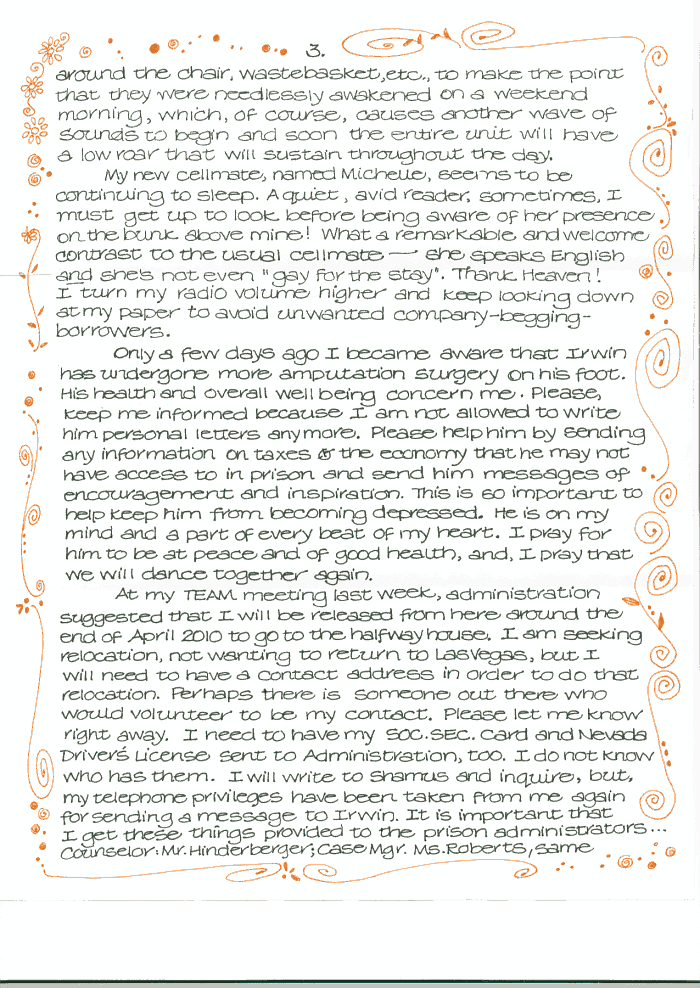 3.
around the chair, wastebasket, etc., to make the point
that they were needlessly awakened on a weekend
morning, which, of course, causes another wave of
sounds to begin and soon the entire unit will have
a low roar that will sustain throughout the day.
My new cellmate, named Michelle, seems to be
continuing to sleep. A quiet, avid reader, sometimes, I
must get up to look before being aware of her presence
on the bunk above mine! What a remarkable and welcome
contrast to the usual cellmate — she speaks English
and she's not even "gay for the stay". Thank Heaven!
I turn my radio volume higher and keep looking down
at my paper to avoid unwanted company-begging-
borrowers.
Only a few days ago I became aware that Irwin
has undergone more amputation surgery on his foot.
His health and overall well being concern me. Please,
keep me informed because I am not allowed to write
him personal letters anymore. Please help him by sending
any information on taxes & the economy that he may not
have access to in prison and send him messages of
encouragement and inspiration. This is so important to
help keep him from becoming depressed. He is on my
mind and a part of every beat of my heart. I pray for
him to be at peace and of good health, and, I pray that
we will dance together again.
At my TEAM meeting last week, administration
suggested that I will be released from here around the
end of April 2010 to go to the halfway house. I am seeking
relocation, not wanting to return to Las Vegas, but I
will need to have a contact address in order to do that
relocation. Perhaps there is someone out there who
would volunteer to be my contact. Please let me know
right away. I need to have my SOC. SEC. Card and Nevada
Driver's License sent to Administration, too. I do not know
who has them. I will write to Shamus and inquire, but,
my telephone privileges have been taken from me again
for sending a message to Irwin. It is important that
I get these things provided to the prison administrators...
Counselor: Mr. Hinderberger; Case Mgr. Ms. Roberts, same